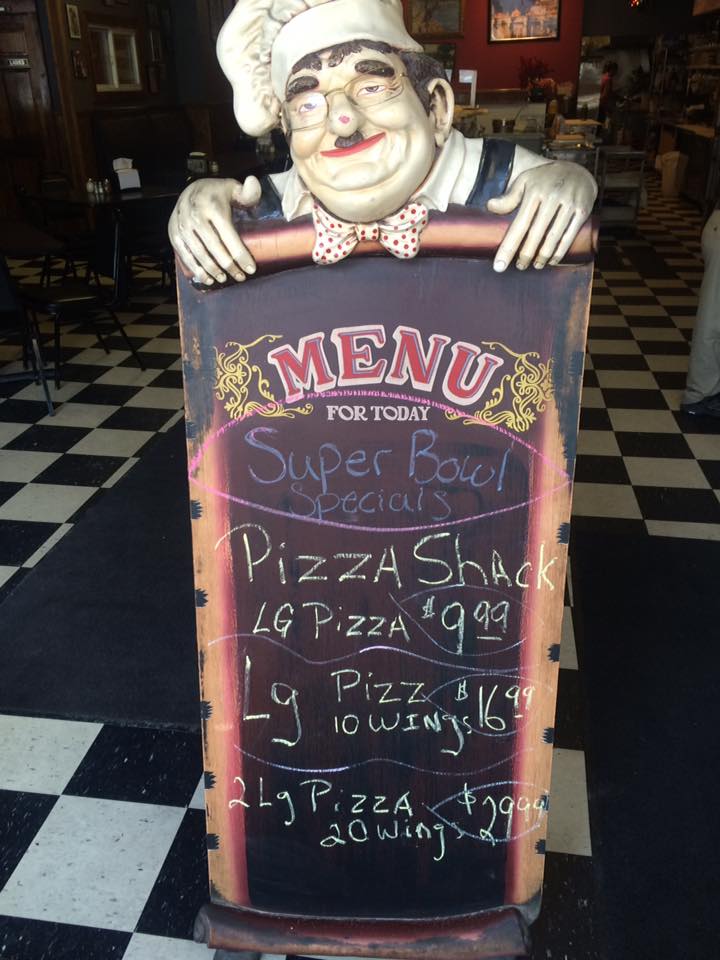 LADIES
MENU
FOR TODAY
Super Bowl
Specials
Pizza Shack
LG Pizza $9.99
Lg Pizz $16.99
10 Wings
2 Lg Pizza $29.99
20 Wings